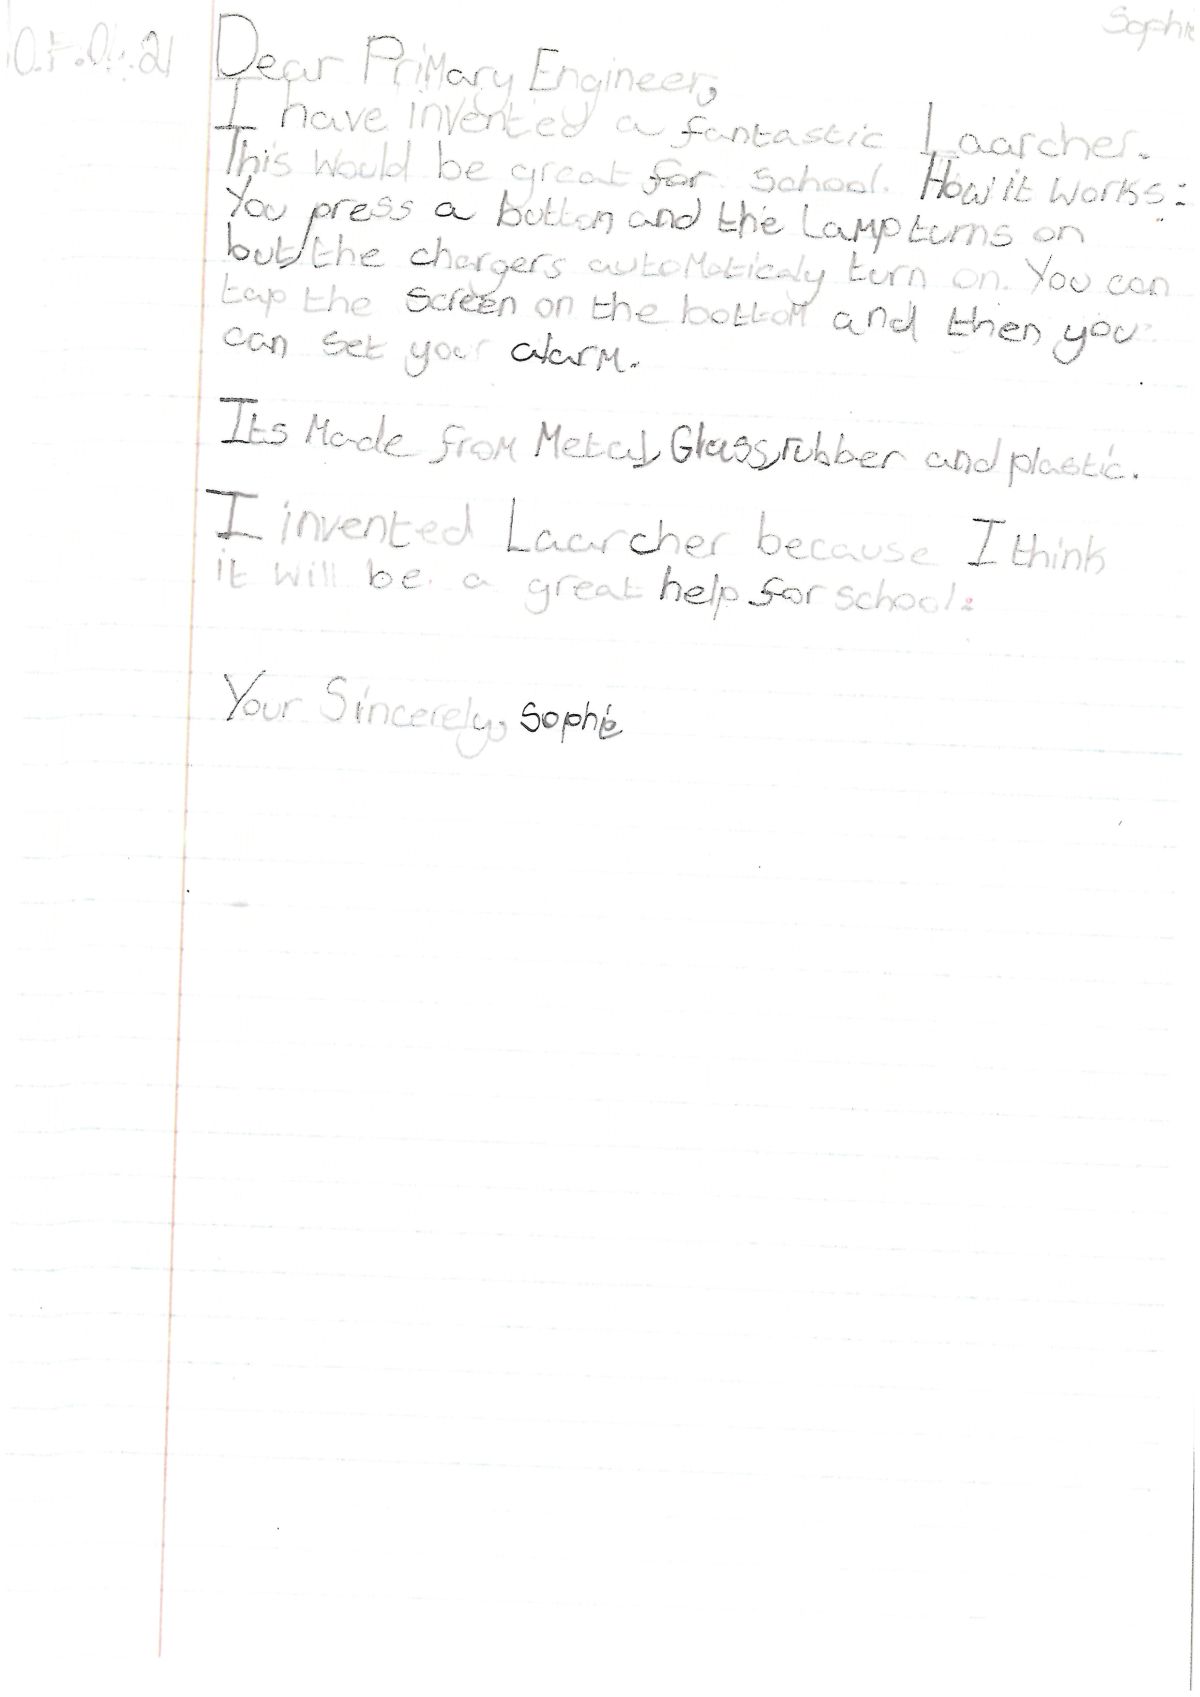 Sophie
Dear Primary Engineer,
I have invented a fantastic Laarcher.
This would be great for school. How it works:
You press a button and the Lamp turns on
but the chargers automaticaly turn on. You can
tap the screen on the bottom and then you
can set your alarm.
Its Made from Metal, Glass, rubber and plastic.
I invented Laarcher because I think
it will be a great help for school.
Your Sincerely, Sophie